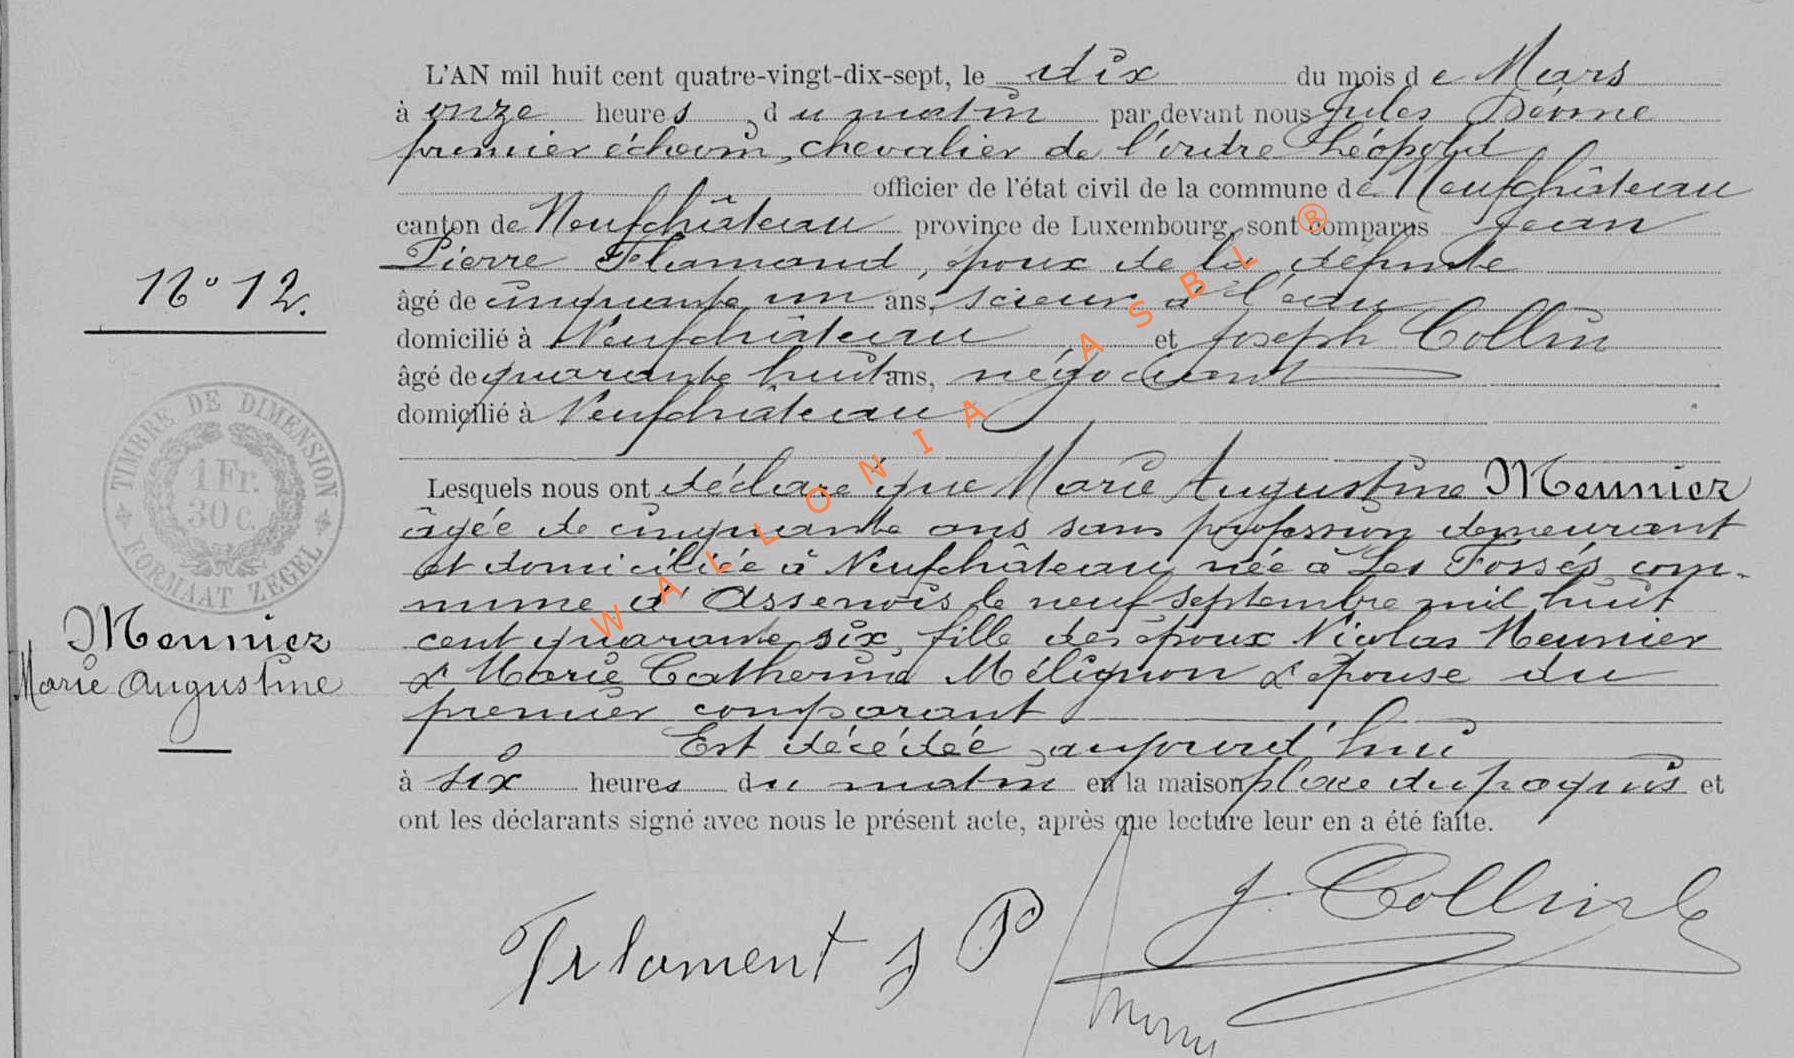 L'AN mil huit cent quatre-vingt-dix-sept, le dix du mois de Mars
à onze heures du matin par devant nous Jules
premier échevin, chevalier de l'ordre Léopold
officier de l'état civil de la commune de Neufchâteau
canton de Neufchâteau province de Luxembourg, sont comparus Jean
Pierre Flamand, époux de la défunte
N° 12.
âgé de cinquante un ans, scieur à l'eau
domicilié à Neufchâteau et Joseph Collin
âgé de quarante huit ans, négociant
domicilié à Neufchâteau
TIMBRE DE DIMENSION
1 Fr.
30 C.
FORMAAT ZEGEL
Lesquels nous ont déclaré que Marie Augustine Meunier
âgée de cinquante ans sans profession demeurant
et domiciliée à Neufchâteau née à Les Fossés com-
mune d'Assenois le neuf septembre mil huit
cent quarante six, fille des époux Nicolas Meunier
& Marie Catherine Mélignon & épouse du
premier comparant
Meunier
Marie Augustine
Est décédée aujourd'hui
à six heures du matin en la maison place du paquis et
ont les déclarants signé avec nous le présent acte, après que lecture leur en a été faite.
J. Collin
J P
WALLONIA ASBL ®